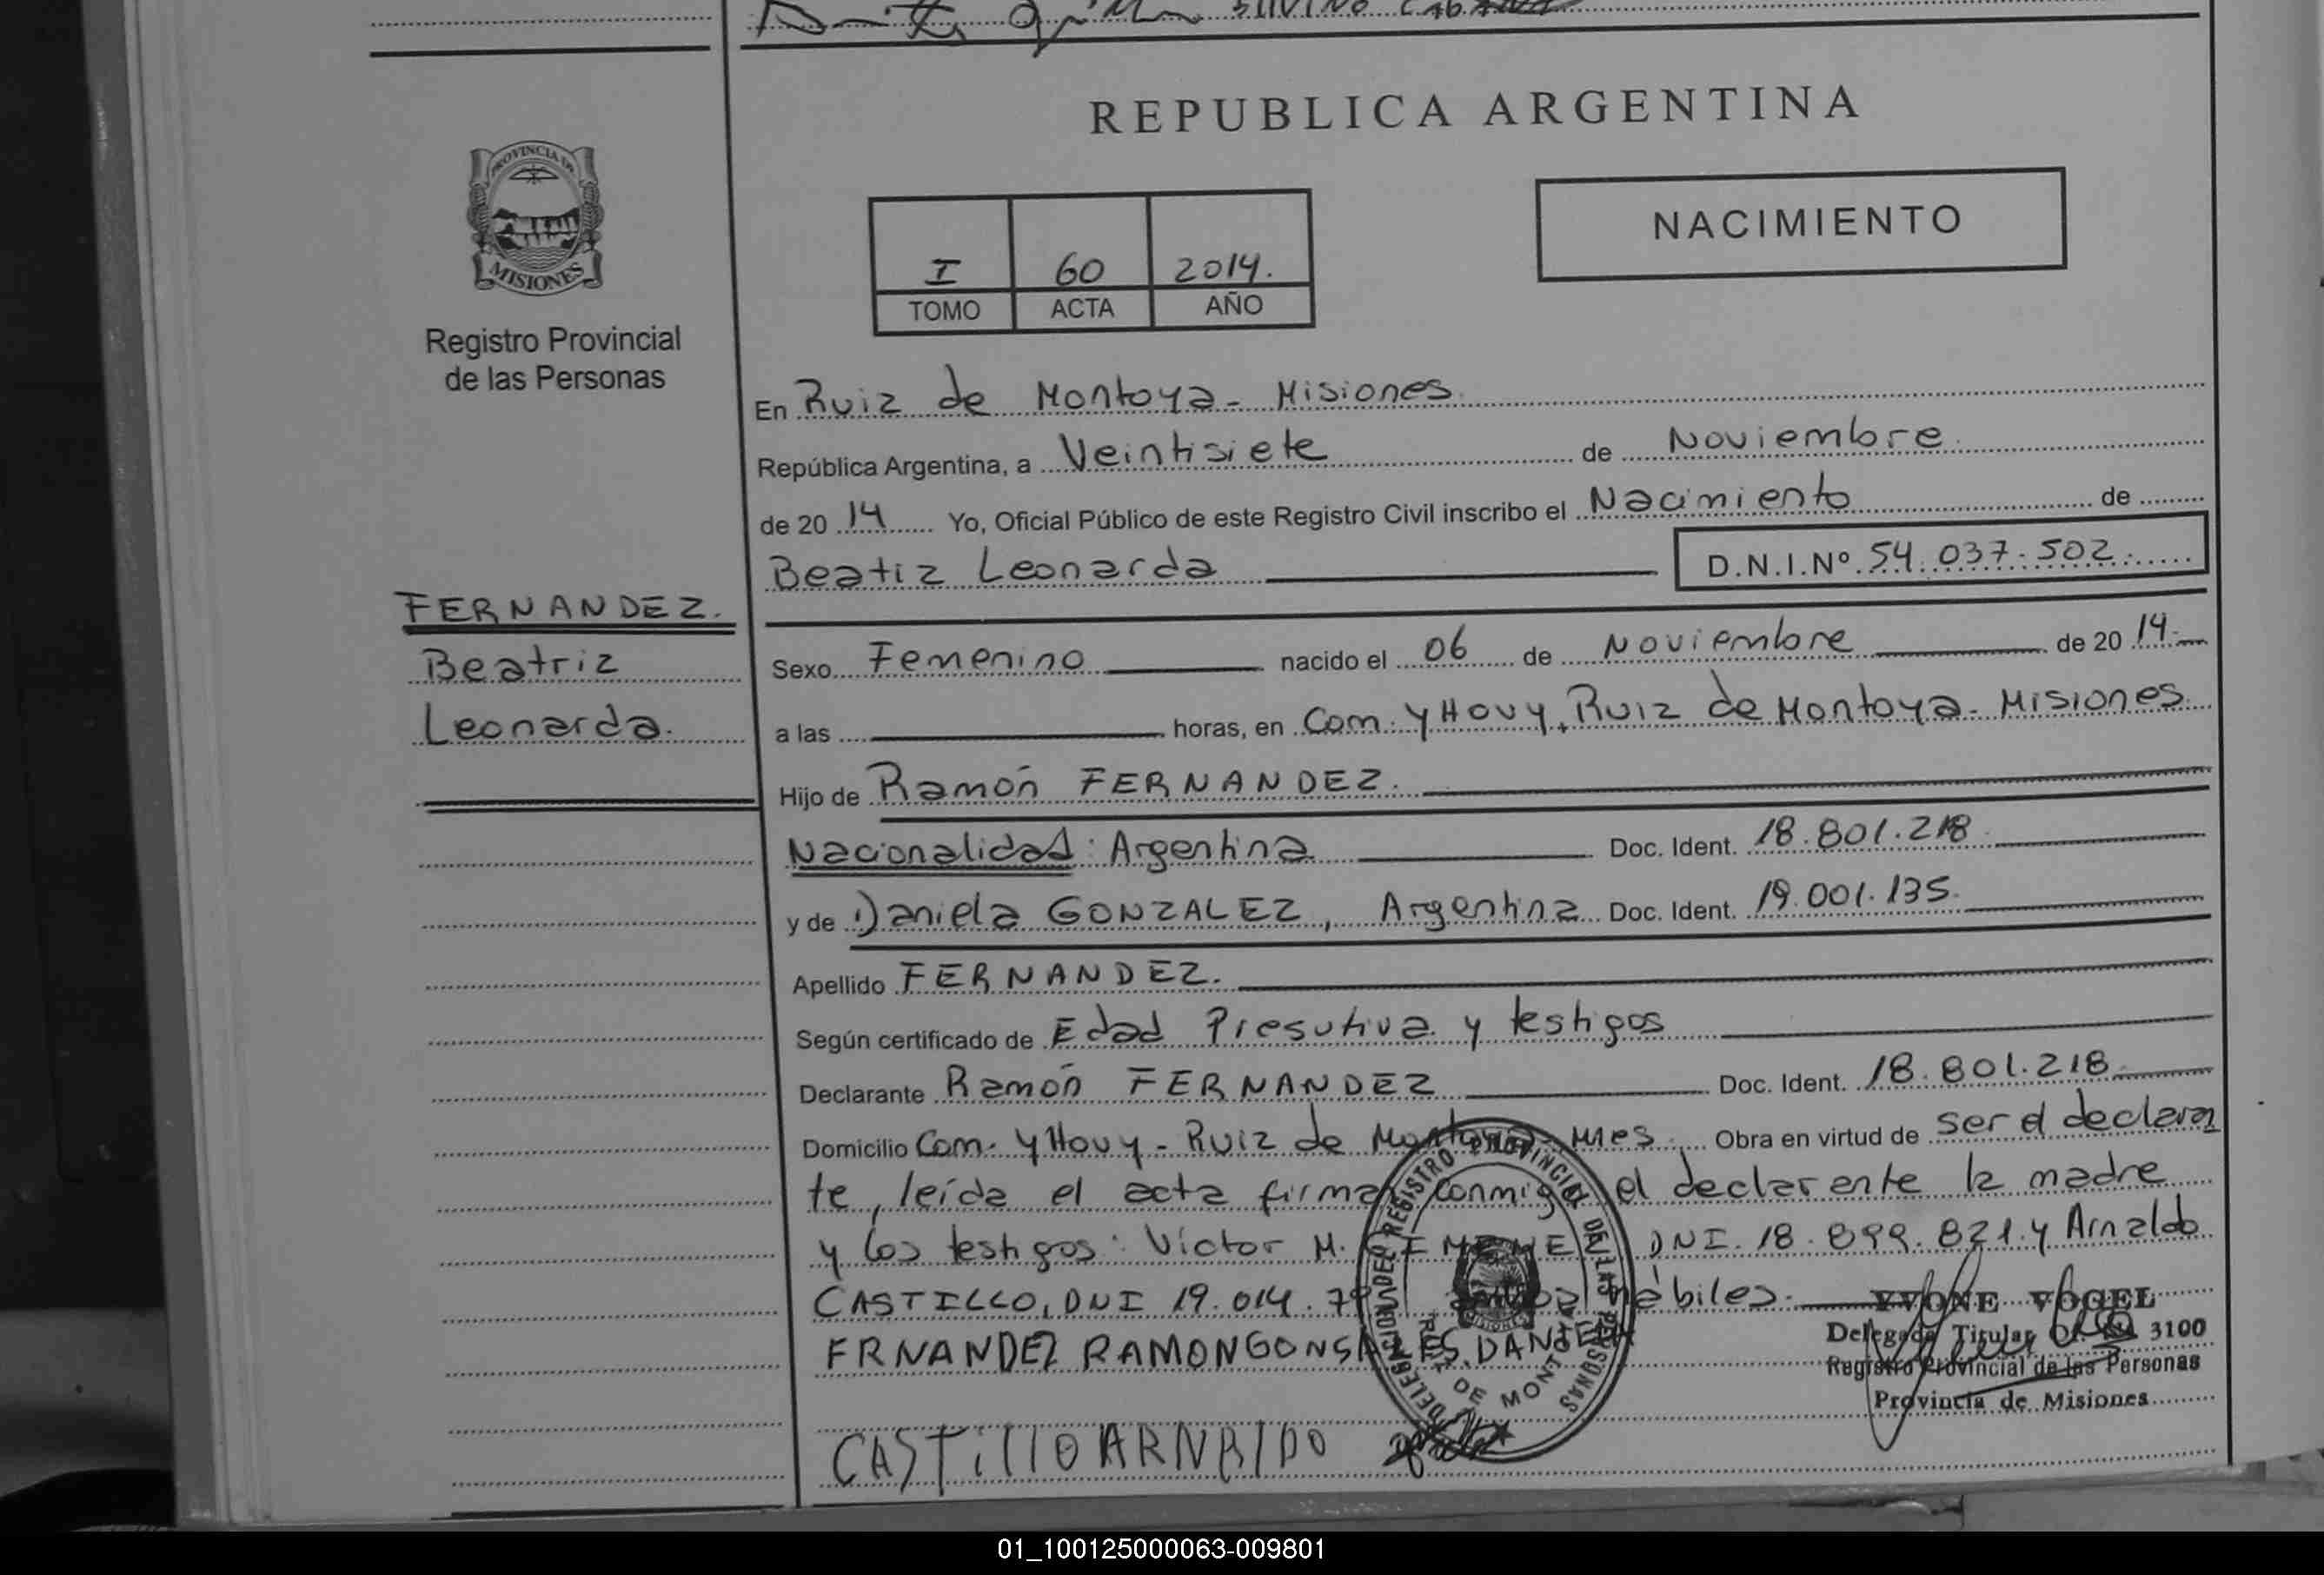 SILVINO CABAÑA
REPUBLICA ARGENTINA
PROVINCIA DE
MISIONES
Registro Provincial
de las Personas
NACIMIENTO
I 60 2014.
TOMO ACTA AÑO
En Ruiz de Montoya - Misiones
República Argentina, a Veintisiete de Noviembre
de 20 14 Yo, Oficial Público de este Registro Civil inscribo el Nacimiento de
Beatiz Leonarda D.N.I.Nº 54.037.502.
FERNANDEZ.
Beatriz
Leonarda.
Sexo Femenino nacido el 06 de Noviembre de 20 14.
a las horas, en Com. YHOVY, Ruiz de Montoya - Misiones
Hijo de Ramón FERNANDEZ.
Nacionalidad: Argentina Doc. Ident. 18.801.218
y de Daniela GONZALEZ, Argentina Doc. Ident. 19.001.135.
Apellido FERNANDEZ.
Según certificado de Edad Presutiva y testigos
Declarante Ramón FERNANDEZ Doc. Ident. 18.801.218
Domicilio Com. YHovy - Ruiz de Montoya - Mes Obra en virtud de ser el declaran
te, leída el acta firman conmigo el declarente la madre
y los testigos: Víctor M. DNI. 18.899.821. y Arnaldo
CASTILLO, DNI 19.014. hábiles.
YVONE VOGEL
Delegada Titular Of. 3100
Registro Provincial de las Personas
Provincia de Misiones
FRNANDEZ RAMON GONSALES. DANIELA
CASTillO ARNALDO
DELEGACION DEL REGISTRO PROVINCIAL DE LAS PERSONAS
DE MONT
01_100125000063-009801